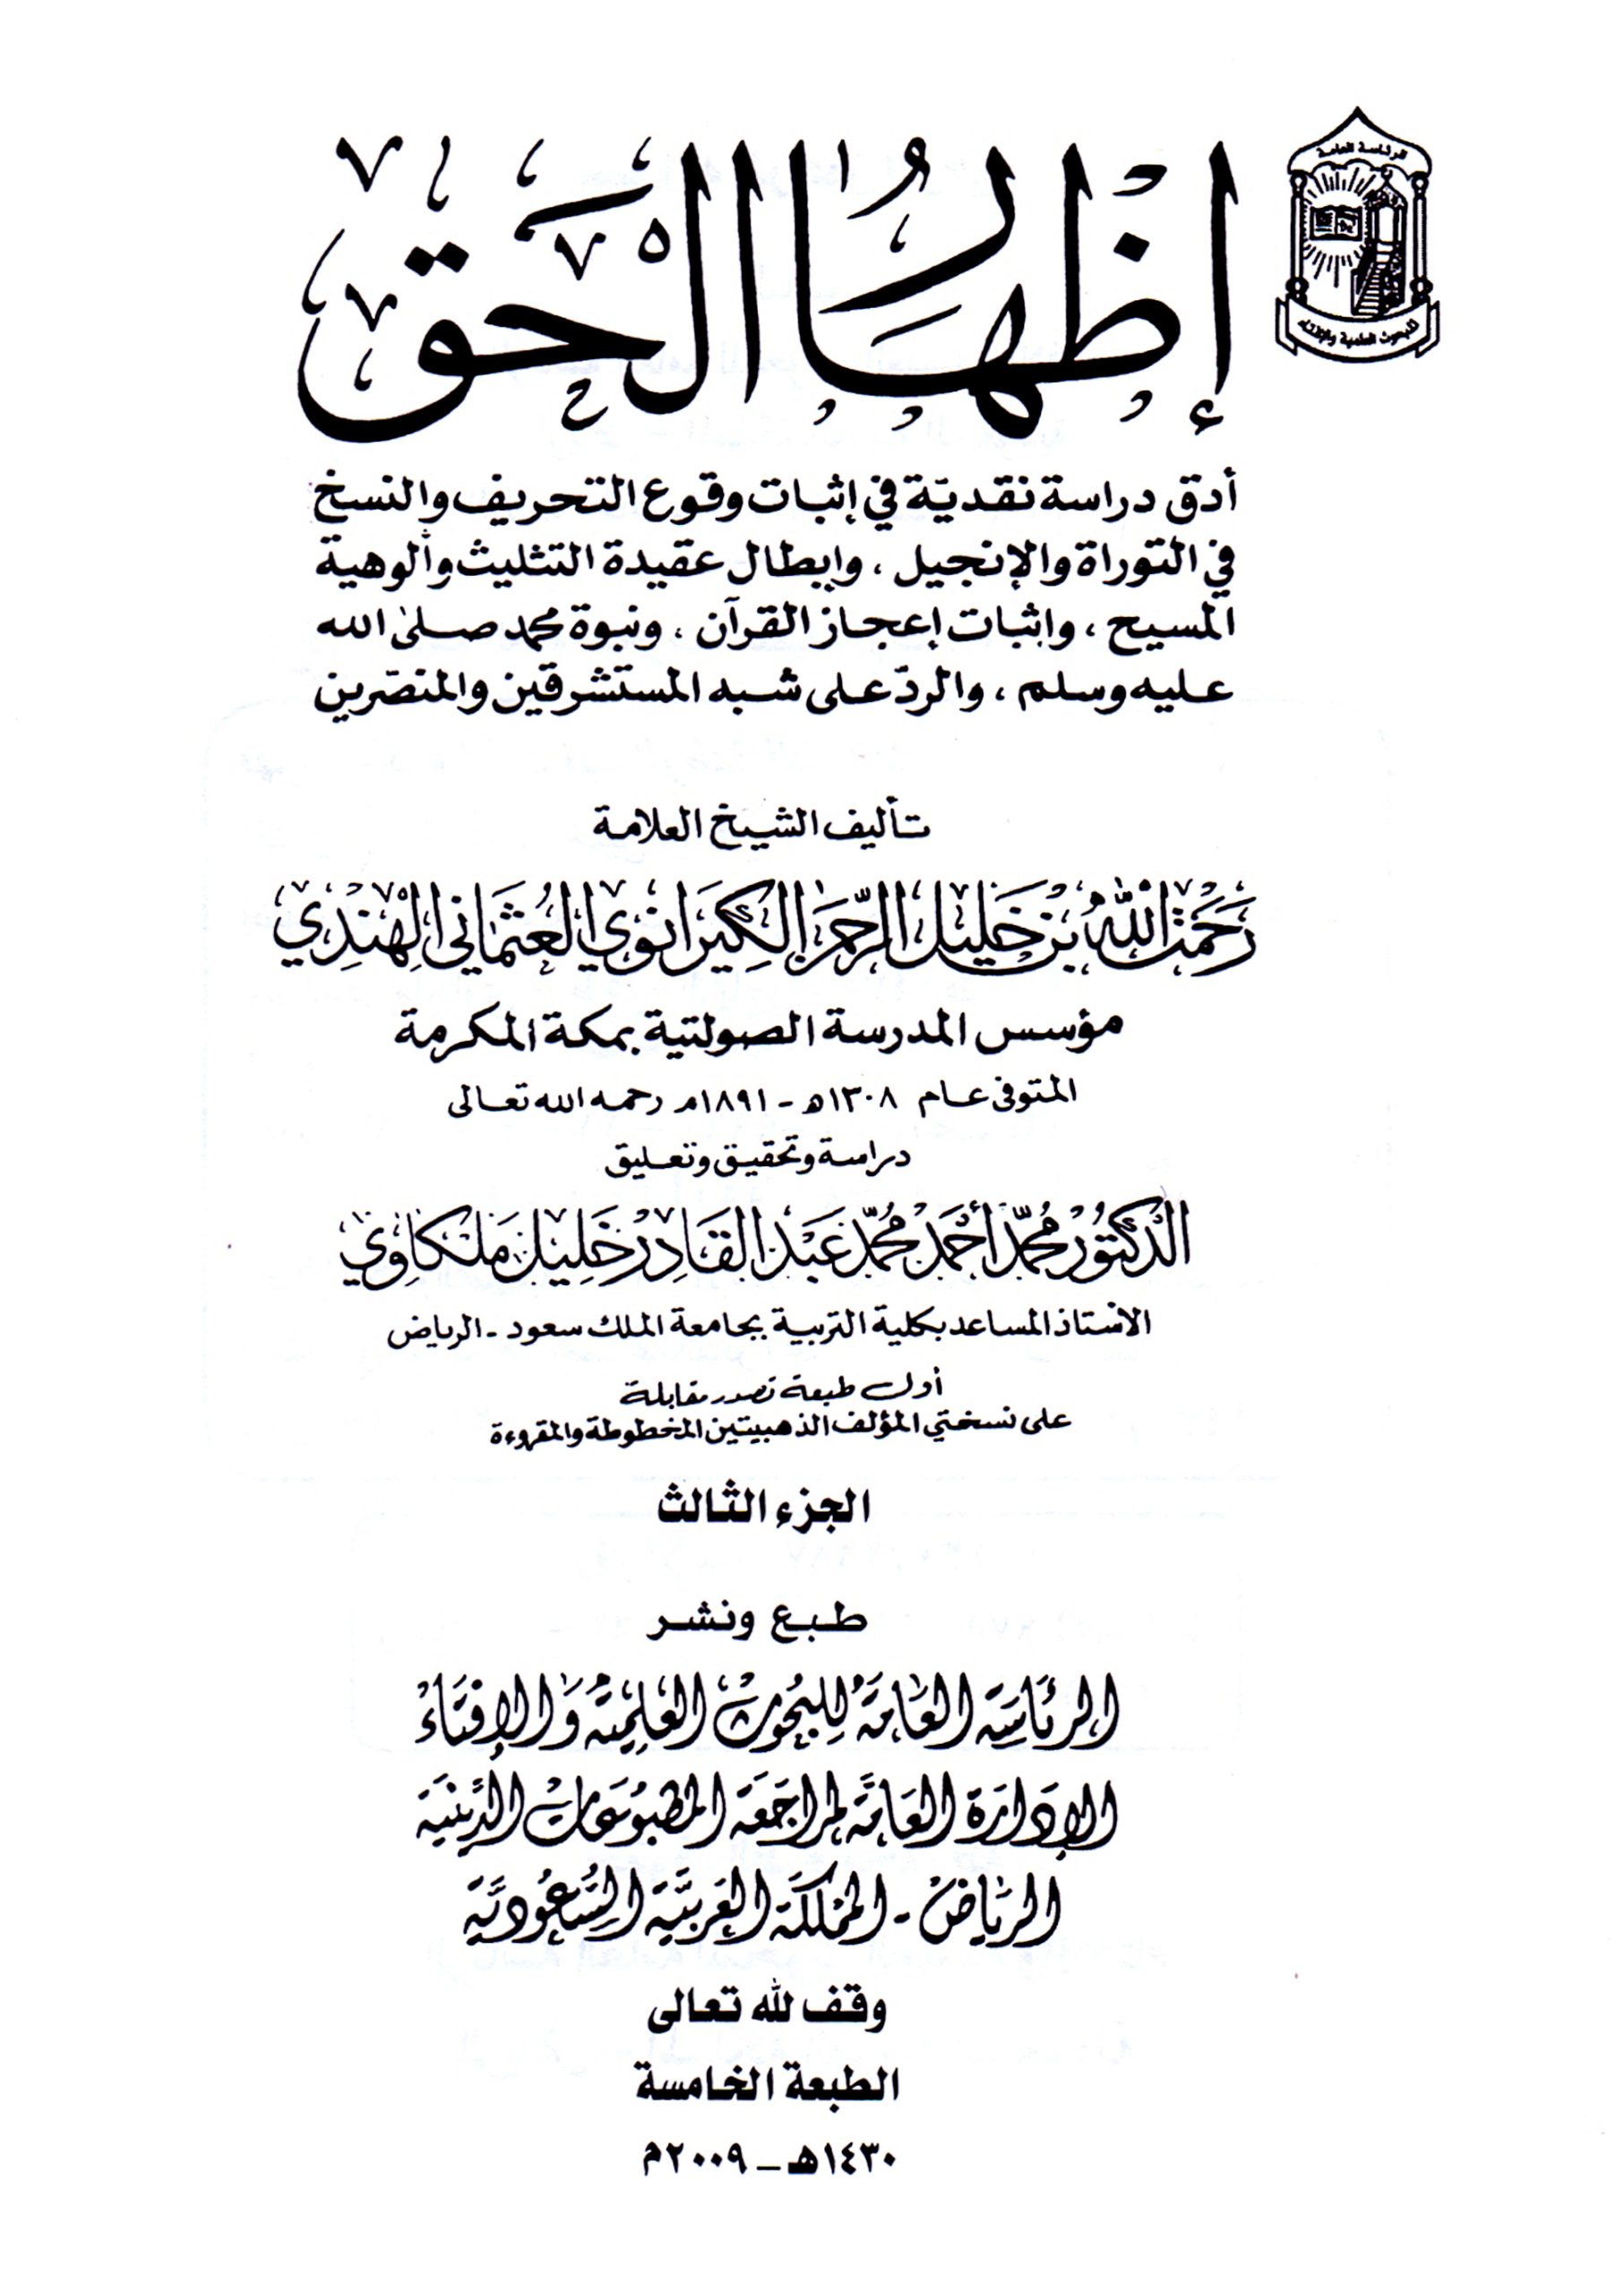 الرئاسة العامة
للبحوث العلمية والإفتاء
إظهار الحق
أدق دراسة نقديّة في إثبات وقوع التحريف والنسخ
في التوراة والإنجيل ، وإبطال عقيدة التثليث وألوهية
المسيح ، وإثبات إعجاز القرآن ، ونبوة محمد صلى الله
عليه وسلم ، والردّ على شبه المستشرقين والمنصّرين
تأليف الشيخ العلامة
رَحمَت الله بن خَليل الرّحمن الكِيرَانوي العُثماني الهِنْدِي
مؤسس المدرسة الصولتية بمكة المكرمة
المتوفى عام ١٣٠٨هـ - ١٨٩١م رحمه الله تعالى
دراسة وتحقيق وتعليق
الدكتور محمّد أحمَد محمّد عَبد القَادِر خَليل مَلكاوي
الأستاذ المساعد بكلية التربية بجامعة الملك سعود - الرياض
أول طبعة تصدر مقابلة
على نسختي المؤلف الذهبيتين المخطوطة والمقروءة
الجزء الثالث
طبع ونشر
الرئاسة العامة للبحوث العلمية والإفتاء
الإدارة العامة لمراجعة المطبوعات الدينية
الرياض - المملكة العربية السعودية
وقف لله تعالى
الطبعة الخامسة
١٤٣٠هـ – ٢٠٠٩م